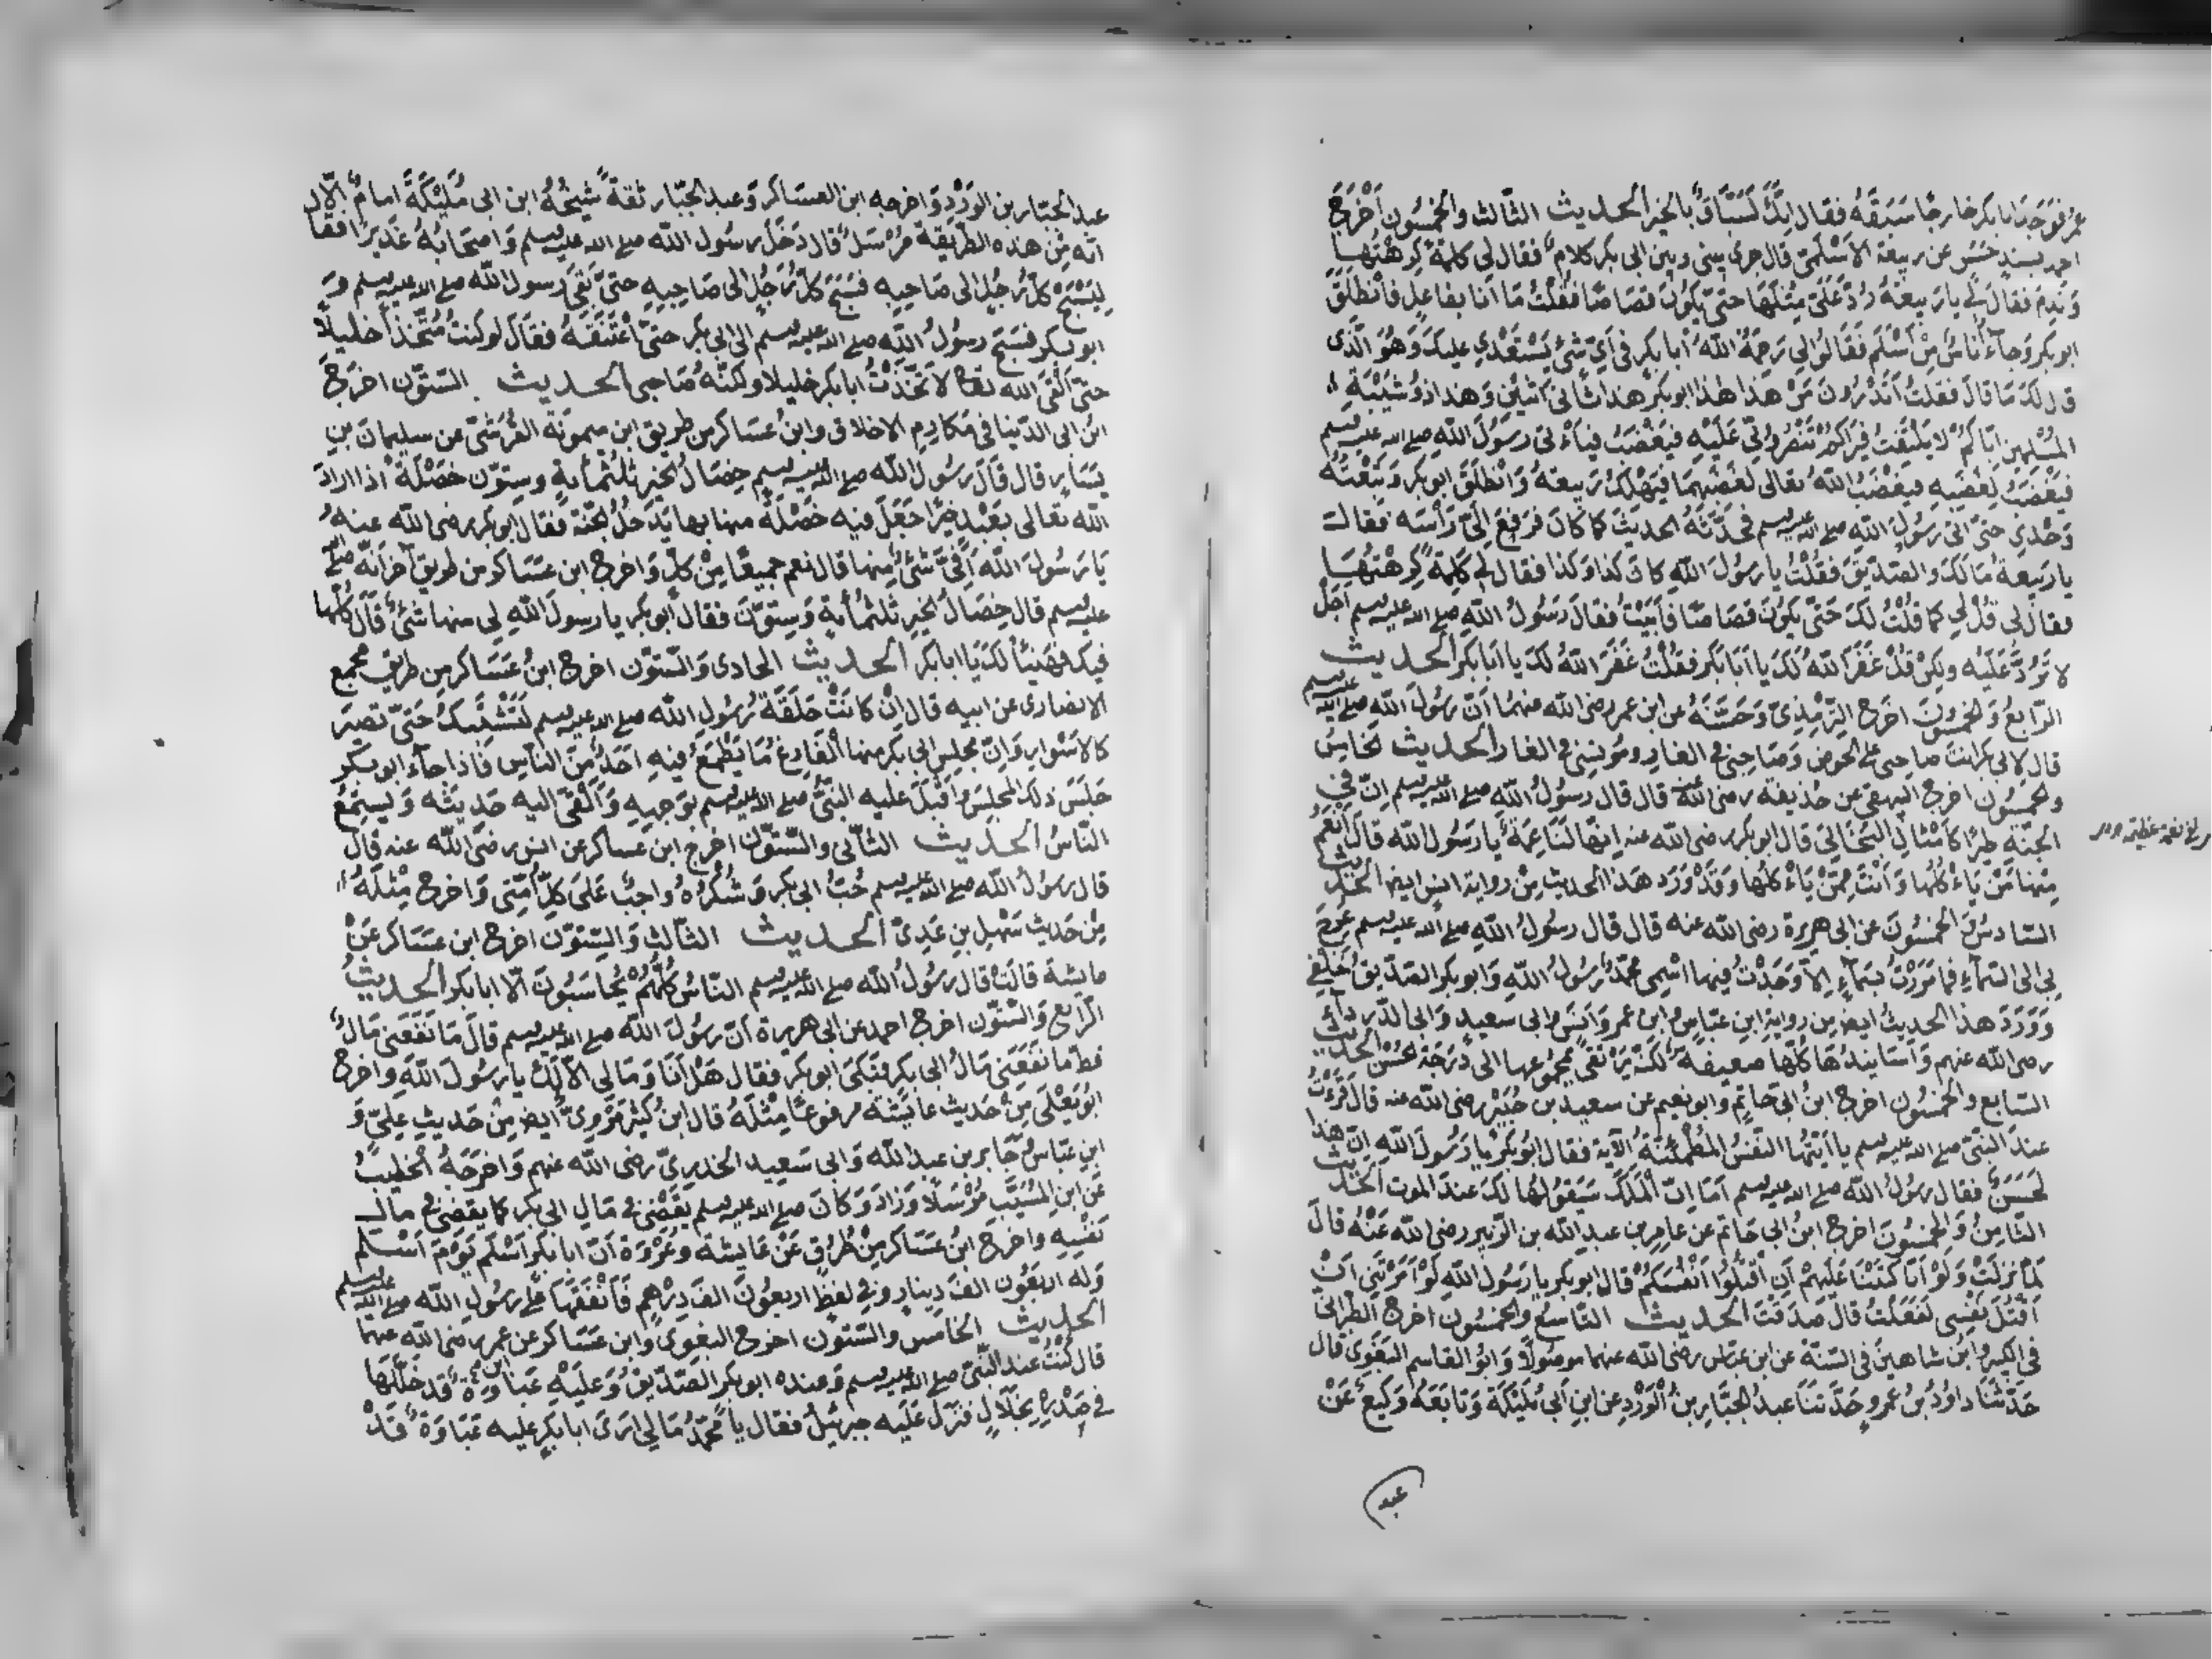 عمر فوجد ابا بكر خارجا سبقه فقال انك لسبّاق بالخير الحديث الثالث والخمسون أخرج
احمد بسند حسن عن ربيعة الاسلمى قال جرى بينى وبين ابى بكر كلام فقال لي كلمة كرهتها
وندم فقال لي يا ربيعة رد على مثلها حتى يكون قصاصا فقلت ما انا بفاعل فانطلق
ابو بكر وجاء اناس من اسلم فقالوا لي رحم الله ابا بكر فى اي شئ يستعدي عليك وهو الذى
قال لك ما قال فقلت اتدرون من هذا هذا ابو بكر هذا ثانى اثنين وهذا ذو شيبة
المسلمين اياكم لا يلتفت فيراكم تنصرونى عليه فيغضب فيأتى رسول الله صلى الله عليه وسلم
فيغضب لغضبه فيغضب الله تعالى لغضبهما فيهلك ربيعة وانطلق ابو بكر وتبعته
وحدي حتى اتى رسول الله صلى الله عليه وسلم فحدثه الحديث كما كان فرفع الىّ رأسه فقال
يا ربيعة ما لك والصديق فقلت يا رسول الله كان كذا وكذا فقال لي كلمة كرهتها
فقال لى قل لي كما قلت لك حتى يكون قصاصا فأبيت فقال رسول الله صلى الله عليه وسلم اجل
لا ترد عليه ولكن قل غفر الله لك يا ابا بكر فقلت غفر الله لك يا ابا بكر الحديث
الرابع والخمسون اخرج الترمذى وحسنه عن ابن عمر رضى الله عنهما ان رسول الله صلى الله عليه وسلم
قال لابى بكر انت صاحبى على الحوض وصاحبى فى الغار ومؤنسى فى الغار الحديث الخامس
والخمسون اخرج البيهقى عن حذيفة رضى الله عنه قال قال رسول الله صلى الله عليه وسلم ان فى
الجنة طيرا كأمثال البخاتى قال ابو بكر رضى الله عنه انها لناعمة يا رسول الله قال انعم
منها من يأكلها وانت ممن يأكلها وقد ورد هذا الحديث من رواية انس ايض الحديث
السادس والخمسون عن ابى هريرة رضى الله عنه قال قال رسول الله صلى الله عليه وسلم عرج
بى الى السماء فما مررت بسماء الا وجدت فيها اسمى محمد رسول الله وابو بكر الصديق خلفى
وورد هذا الحديث ايض من رواية ابن عباس وابن عمر وانس وابى سعيد وابى الدرداء
رضى الله عنهم واسانيدها كلها ضعيفة لكنه يرتقى مجموعها الى درجة الحسن الحديث
السابع والخمسون اخرج ابن ابى حاتم وابو نعيم عن سعيد بن جبير رضى الله عنه قال قرءت
عند النبى صلى الله عليه وسلم يا ايتها النفس المطمئنة الآية فقال ابو بكر يا رسول الله ان هذا
لحسن فقال رسول الله صلى الله عليه وسلم اما ان الملك سيقولها لك عند الموت الحديث
الثامن والخمسون اخرج ابن ابى حاتم عن عامر بن عبد الله بن الزبير رضى الله عنه قال
لما نزلت ولو انا كتبنا عليهم ان اقتلوا انفسكم قال ابو بكر يا رسول الله لو امرتنى ان
اقتل نفسى لفعلت قال صدقت الحديث التاسع والخمسون اخرج الطبرانى
فى الكبير وابن شاهين فى السنة عن ابن عباس رضى الله عنهما موصولا وابو القاسم البغوى قال
حدثنا داود بن عمرو حدثنا عبد الجبار بن الورد عن ابن ابى مليكة وتابعه وكيع عن
عبد
عبد الجبار بن الورد واخرجه ابن العساكر وعبد الجبار ثقة شيخه ابن ابى مليكة امام الا
انه من هذه الطريقة مرسل قال دخل رسول الله صلى الله عليه وسلم واصحابه غديرا فقال
ليسبح كل رجل الى صاحبه فسبح كل رجل الى صاحبه حتى بقى رسول الله صلى الله عليه وسلم و
ابو بكر فسبح رسول الله صلى الله عليه وسلم الى ابى بكر حتى اعتنقه فقال لو كنت متخذا خليلا
حتى القى الله تعا لاتخذت ابا بكر خليلا ولكنه صاحبى الحديث الستون اخرج
ابن ابى الدنيا فى مكارم الاخلاق وابن عساكر من طريق ابن ميمونة القرشى عن سليمان بن
يسار قال قال رسول الله صلى الله عليه وسلم خصال الخير ثلثمأية وستون خصلة اذا اراد
الله تعالى بعبد خيرا جعل فيه خصلة منها بها يدخل الجنة فقال ابو بكر رضى الله عنه
يا رسول الله أفىّ شئ منها قال نعم جميعا من كل واخرج ابن عساكر من طريق آخر انه صلى الله
عليه وسلم قال خصال الخير ثلثمأية وستون فقال ابو بكر يا رسول الله لى منها شئ قال كلها
فيك فهنيئا لك يا ابا بكر الحديث الحادى والستون اخرج ابن عساكر من طريق مجمع
الانصارى عن ابيه قال ان كانت حلقة رسول الله صلى الله عليه وسلم لتشتبك حتى تصير
كالاسوار وان مجلس ابى بكر منها لفارغ ما يطمع فيه احد من الناس فاذا جاء ابو بكر
جلس ذلك المجلس واقبل عليه النبى صلى الله عليه وسلم بوجهه والقى اليه حديثه ويستمع
الناس الحديث الثانى والستون اخرج ابن عساكر عن انس رضى الله عنه قال
قال رسول الله صلى الله عليه وسلم حب ابى بكر وشكره واجب على كل امتى واخرج مثله
من حديث سهل بن عدى الحديث الثالث والستون اخرج ابن عساكر عن
عايشة قالت قال رسول الله صلى الله عليه وسلم الناس كلهم يحاسبون الا ابا بكر الحديث
الرابع والستون اخرج احمد عن ابى هريرة ان رسول الله صلى الله عليه وسلم قال ما نفعنى مال
قط ما نفعنى مال ابى بكر فبكى ابو بكر فقال هل انا ومالى الا لك يا رسول الله واخرج
ابو يعلى من حديث عايشة مرفوعا مثله قال ابن كثير مروى ايض من حديث على و
ابن عباس وجابر بن عبد الله وابى سعيد الخدرى رضى الله عنهم واخرجه الخطيب
عن ابن المسيب مرسلا وزاد وكان صلى الله عليه وسلم يقضى فى مال ابى بكر كما يقضى فى مال
نفسه واخرج ابن عساكر من طرق عن عايشة وعروة ان ابا بكر اسلم يوم اسلم
وله اربعون الف دينار وفى لفظ اربعون الف درهم فانفقها على رسول الله صلى الله عليه وسلم
الحديث الخامس والستون اخرج البغوى وابن عساكر عن ابن عمر رضى الله عنهما
قال كنت عند النبى صلى الله عليه وسلم وعنده ابو بكر الصديق وعليه عباوة قد خللها
فى صدره بخلال فنزل عليه جبرئيل فقال يا محمد ما لي ارى ابا بكر عليه عباوة قد